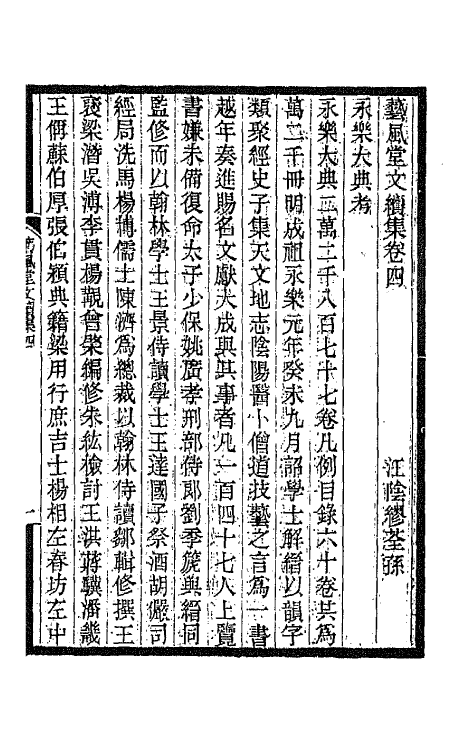 藝風堂文續集卷四
江陰繆荃孫
永樂大典考
永樂大典二萬二千八百七十七卷凡例目錄六十卷共爲
萬二千冊明成祖永樂元年癸未九月詔學士解縉以韻字
類聚經史子集天文地志陰陽醫卜僧道技藝之言爲一書
越年奏進賜名文獻大成與其事者凡一百四十七人上覽
書嫌未備復命太子少保姚廣孝刑部侍郎劉季篪與縉同
監修而以翰林學士王景侍讀學士王達國子祭酒胡儼司
經局洗馬楊博儒士陳濟爲總裁以翰林侍讀鄒輯修撰王
褒梁潛吳溥李貫楊覯曾棨編修朱紘檢討王洪蔣驥潘畿
王偁蘇伯厚張伯潁典籍梁用行庶吉士楊相左春坊左中
藝風堂文續集四
一